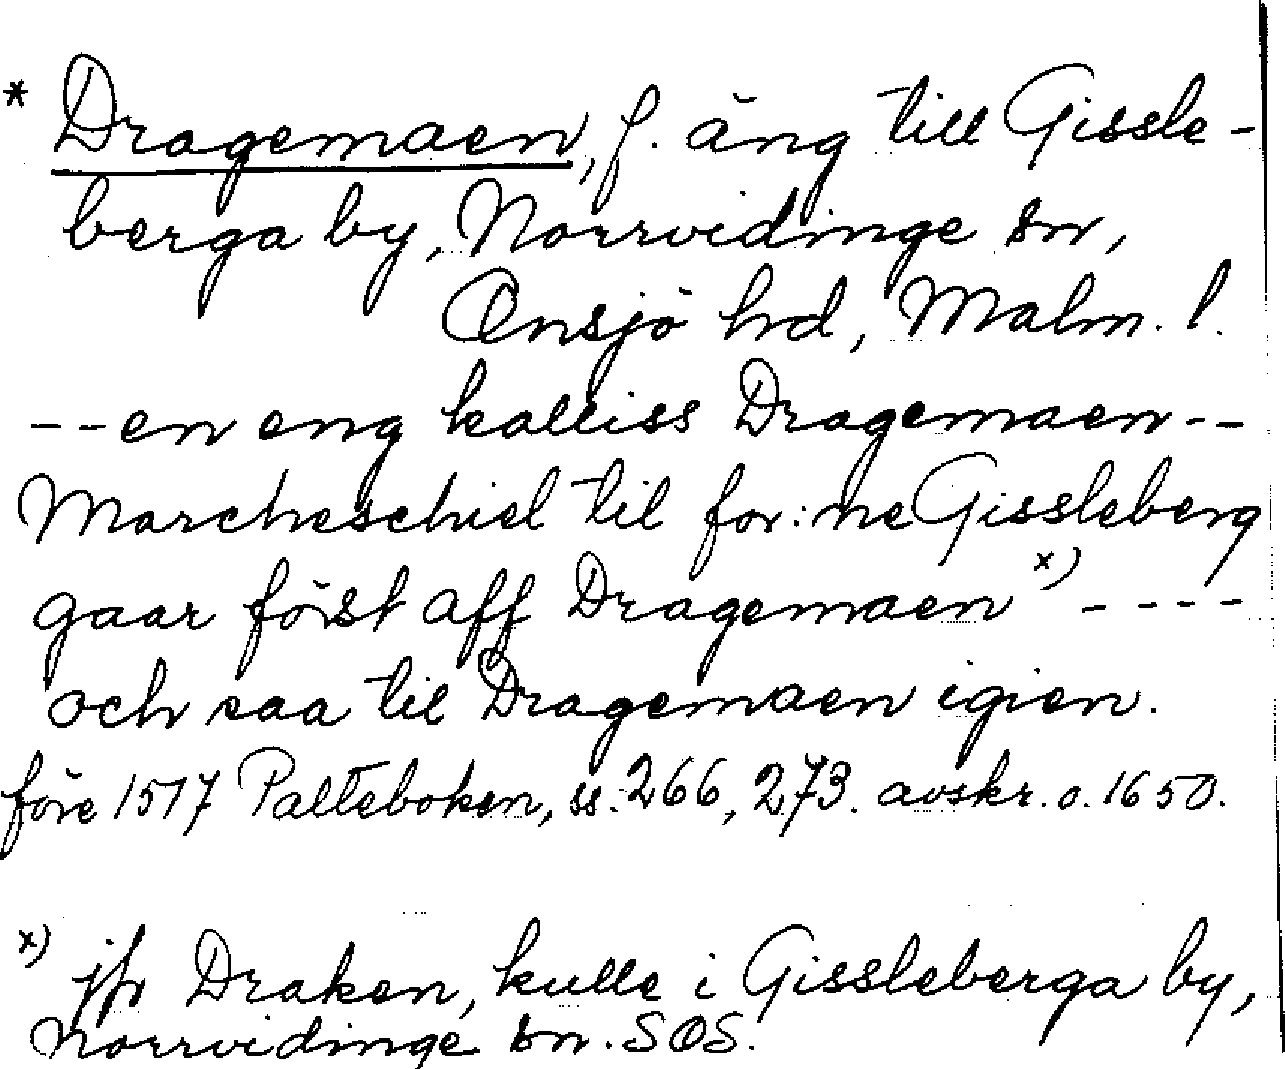 * Dragemaen, f. äng till Gissle-
berga by, Norrvidinge sn,
Onsjö hd, Malm. l.
-- en eng kalliss Dragemaen --
Marcheschiel til for:ne Gissleberg
gaar först aff Dragemaen x) ----
och saa til Dragemaen igien.
före 1517 Palteboken, ss. 266, 273. avskr. o. 1650.
x) jfr Draken, kulle i Gissleberga by,
Norrvidinge sn. SOS.